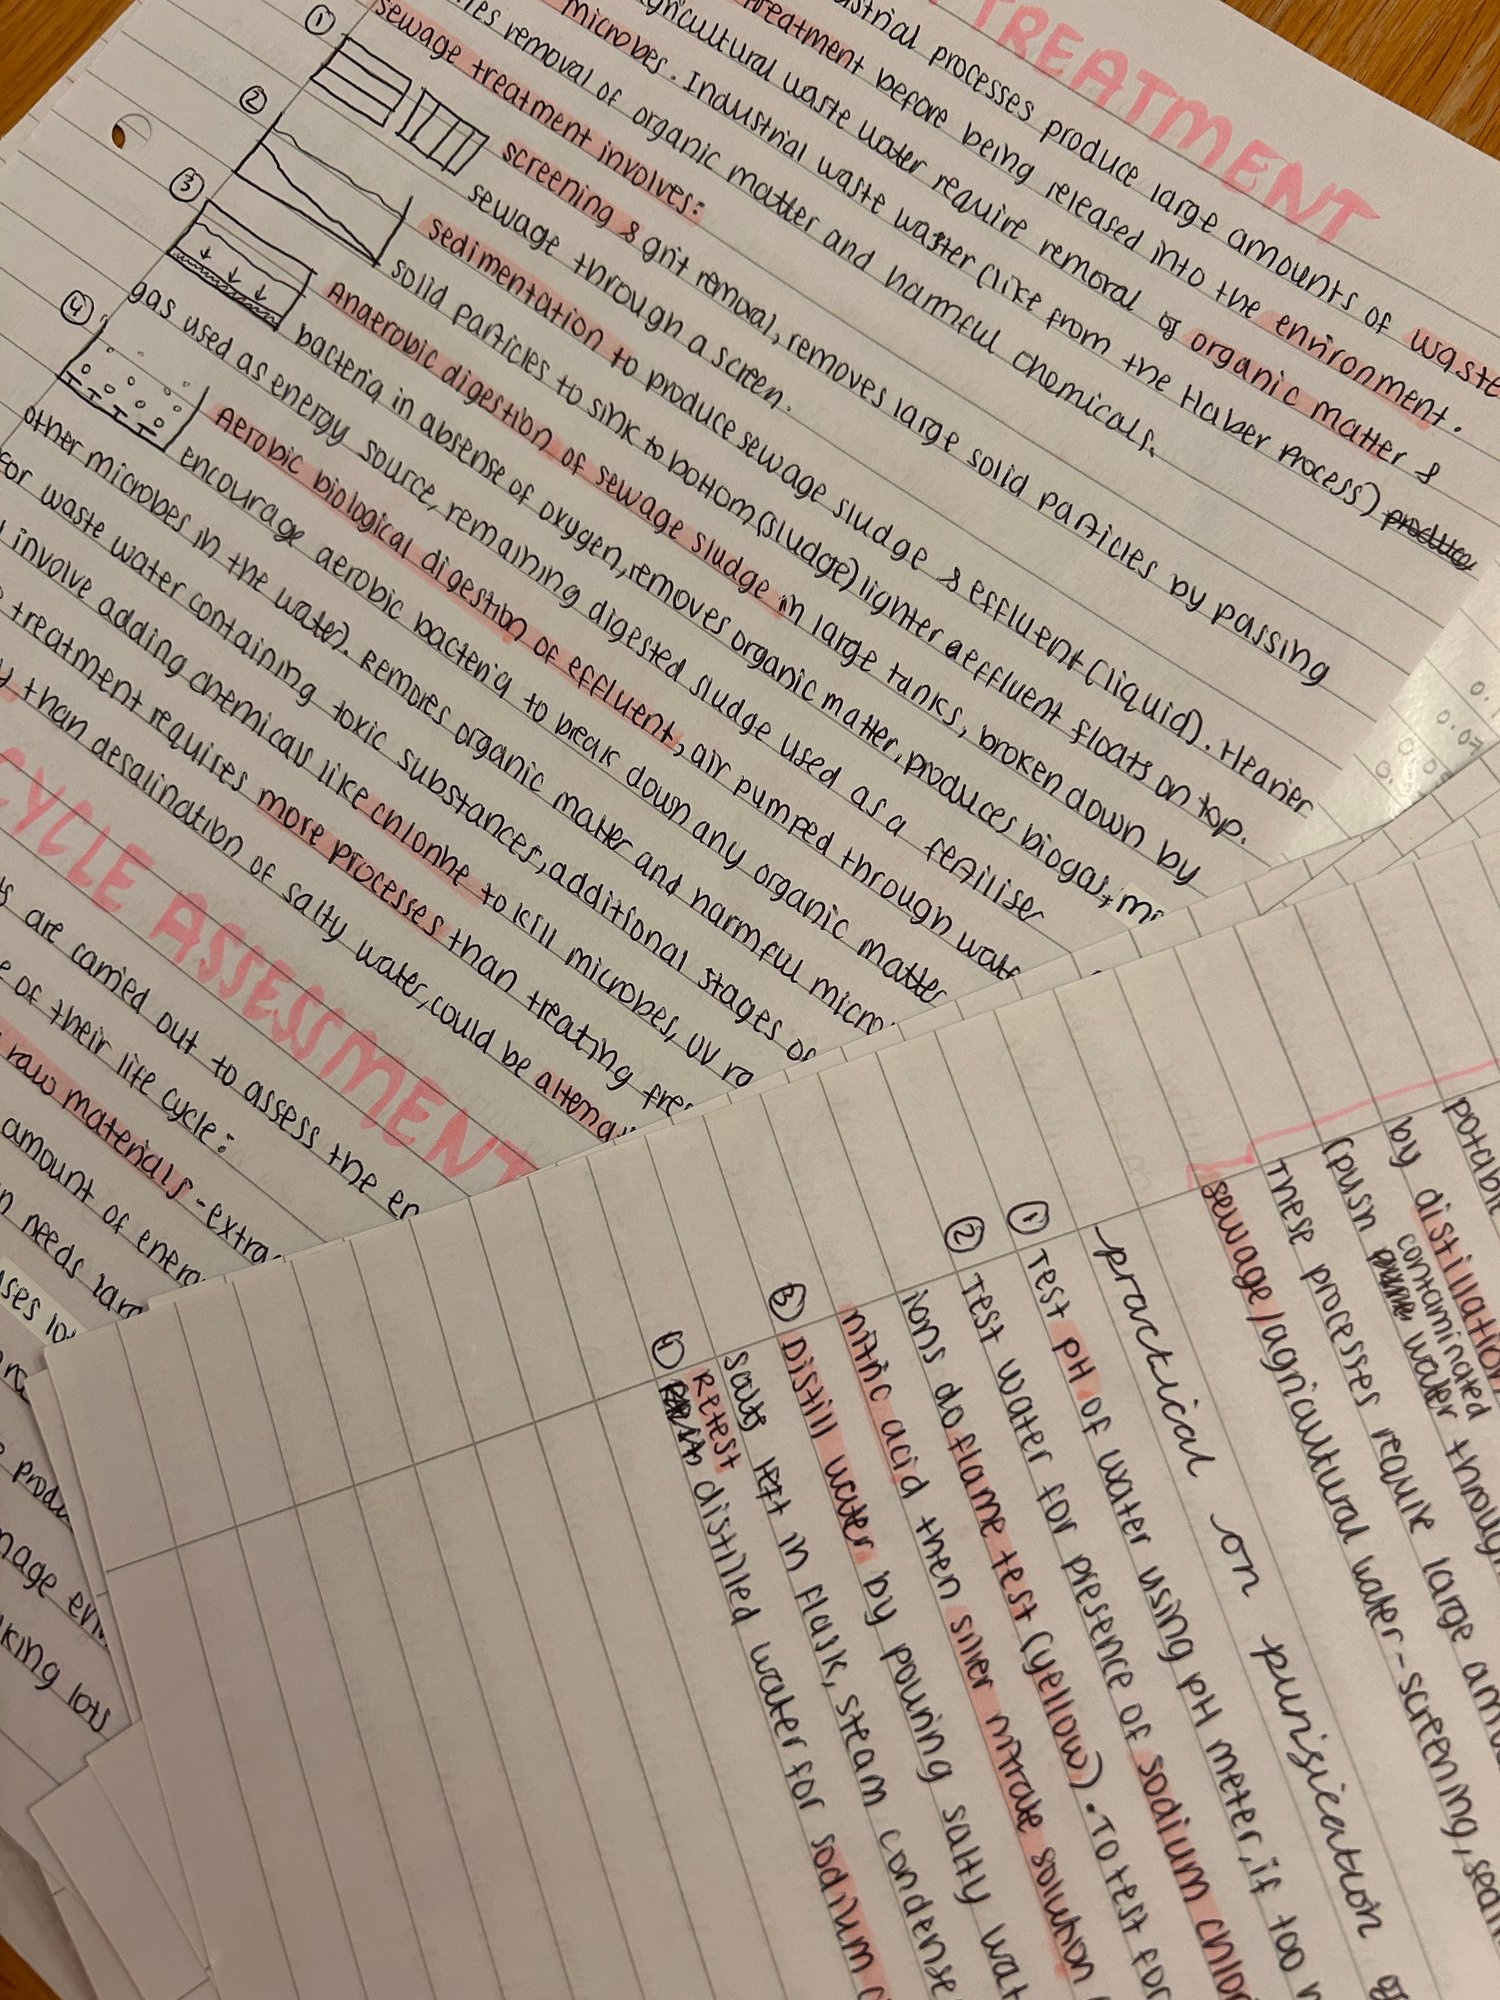 TREATMENT
ustrial processes produce large amounts of waste
treatment before being released into the environment.
agricultural waste water require removal of organic matter &
microbes. Industrial waste water (like from the Haber Process) produce
removal of organic matter and harmful chemicals.
sewage treatment involves:
① screening & grit removal, removes large solid particles by passing
sewage through a screen.
② sedimentation to produce sewage sludge & effluent (liquid). Heavier
solid particles to sink to bottom (sludge) lighter effluent floats on top.
③ Anaerobic digestion of sewage sludge in large tanks, broken down by
bacteria in absense of oxygen, removes organic matter, produces biogas,
gas used as energy source, remaining digested sludge used as a fertiliser
④ Aerobic biological digestion of effluent, air pumped through wat
encourage aerobic bacteria to break down any organic matter
other microbes in the water). Removes organic matter and harmful micro
for waste water containing toxic substances, additional stages of
involve adding chemicals like chlorine to kill microbes, UV ra
treatment requires more processes than treating fres
than desalination of salty water, could be alterna
CYCLE ASSESSMENT
are carried out to assess the en
of their life cycle:
raw materials - extra
amount of energ
needs larg
uses lo
produ
mage
king lots
0.07
potable
by distillation
contaminated
(push water through
These processes require large amou
sewage/agricultural water - screening, sedi
practical on purification of
① Test pH of water using pH meter, if too
② Test water for presence of sodium chlor
ions do flame test (yellow). To test for
nitric acid then silver nitrate solution
③ Distill water by pouring salty wat
salts left in flask, steam condense
④ Retest distilled water for sodium c